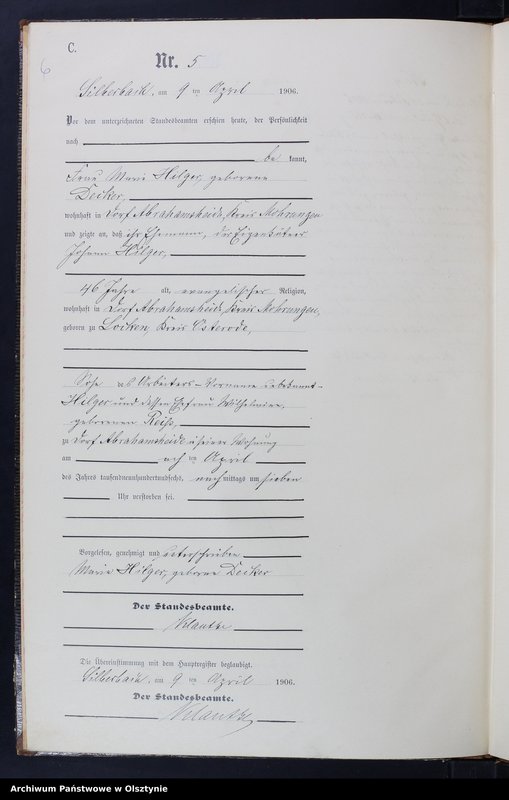 C.
6
Nr. 5
Silberbach, am 9 ten April 1906.
Vor dem unterzeichneten Standesbeamten erschien heute, der Persönlichkeit
nach
be kannt,
Frau Marie Hilger, geborene
Decker,
wohnhaft in Dorf Abrahamsheide, Kreis Mohrungen
und zeigte an, daß ihr Ehemann, der Eigenkätner
Johann Hilger,
46 Jahre alt, evangelischer Religion,
wohnhaft in Dorf Abrahamsheide, Kreis Mohrungen,
geboren zu Locken, Kreis Osterode,
Sohn des Arbeiters – Vorname unbekannt –
Hilger und dessen Ehefrau Wilhelmine,
geborenen Reiß,
zu Dorf Abrahamsheide in seiner Wohnung
am acht ten April
des Jahres tausendneunhundertundsechs, nachmittags um sieben
Uhr verstorben sei.
Vorgelesen, genehmigt und unterschrieben
Marie Hilger, geborene Decker
Der Standesbeamte.
Die Übereinstimmung mit dem Hauptregister beglaubigt.
Silberbach, am 9 ten April 1906.
Der Standesbeamte.
Archiwum Państwowe w Olsztynie